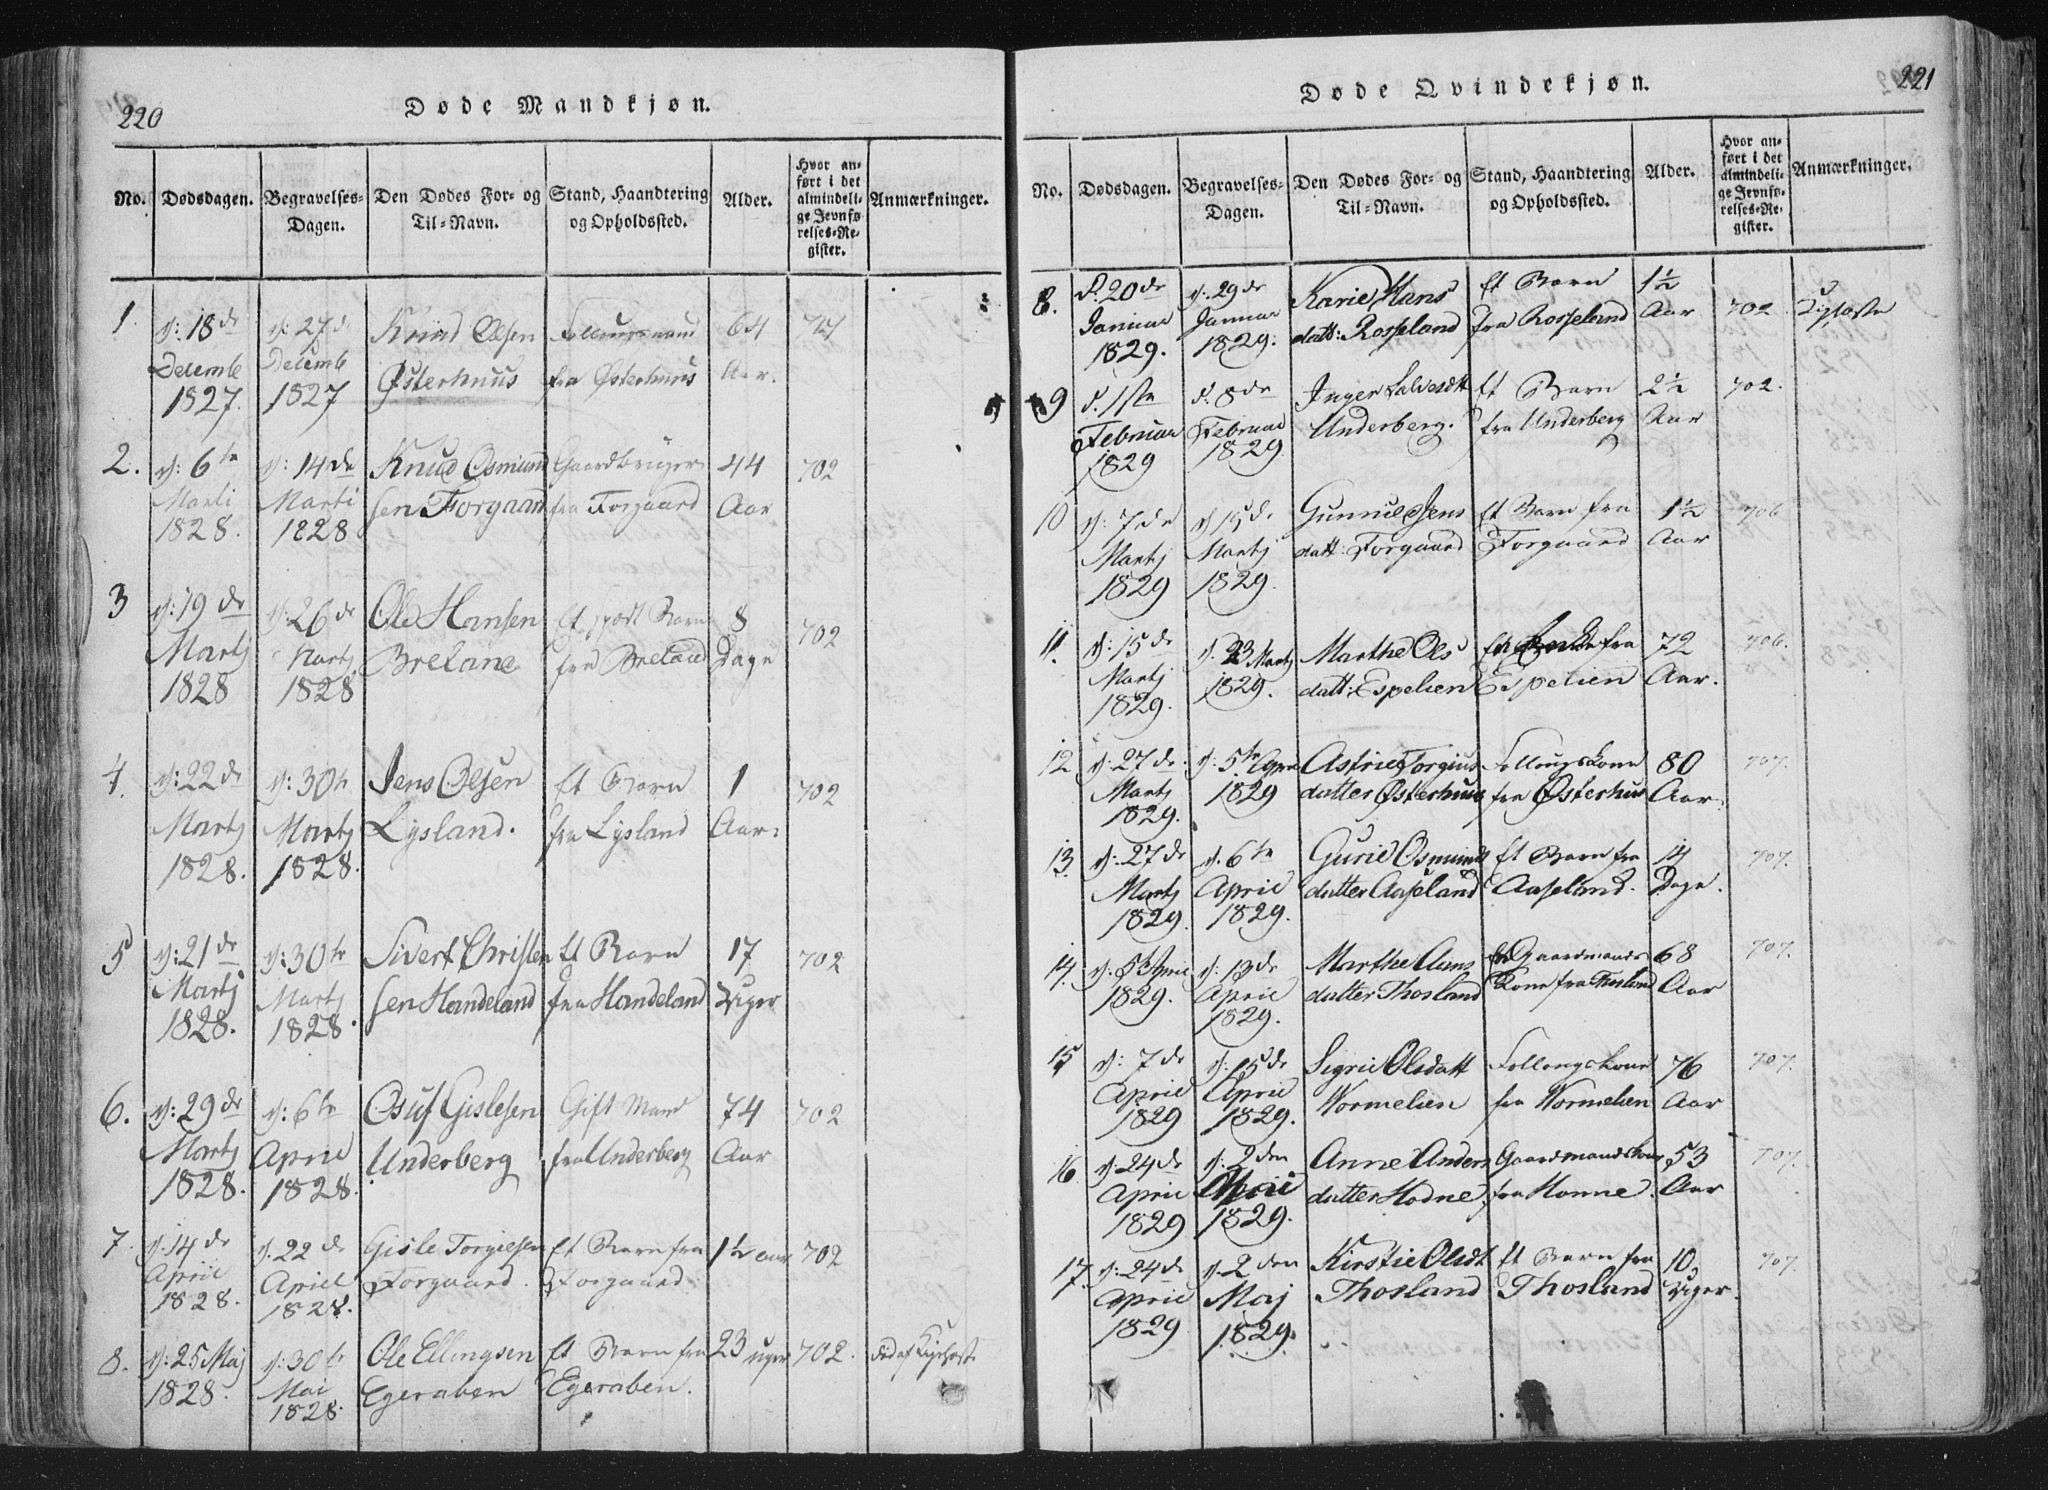 220
Døde Mandkjøn.
No. Dødsdagen. Begravelses-Dagen. Den Dødes For- og Til-Navn. Stand, Haandtering og Opholdssted. Alder. Hvor anført i det almindelige Jevnførelses-Register. Anmærkninger.
1. d: 18de d: 27d Knud Olsen fra Østerhuus 64
Decemb Decemb Østerhuus Aar.
1827. 1827
2. d: 6te d: 14de Knud Osmund Gaardbruger 44 702
Marti Marti sen Forgaard fra Forgaard Aar
1828. 1828
3 d: 19de d: 26de Ole Hansen Et spædt Barn 8 702
Martj Martj Breland fra Breland Dage
1828 1828
4. d: 22de d: 30te Jens Olsen Et Barn 1 702
Martj Martj Lysland. fra Lysland Aar.
1828. 1828.
5 d: 21de d: 30te Sivert Christen Et Barn 17 702
Martj Martj sen Handeland fra Handeland Uger
1828. 1828.
6. d: 29de d: 6te Osuf Gislesen Gift Mand 74 702
Martj April Underberg fra Underberg Aar
1828. 1828.
7. d. 14de d. 22de Gisle Torgielsen Et Barn fra 1½ aar 702
April April Forgaard. Forgaard.
1828. 1828.
8. d: 25 Maj d: 30te Ole Ellingsen Et Barn fra 23 uger 702. død af Kighoste
1828. Mai Egeraben Egeraben.
1828.
221
Døde Qvindekjøn.
No. Dødsdagen. Begravelses-Dagen. Den Dødes For- og Til-Navn. Stand, Haandtering og Opholdssted. Alder. Hvor anført i det almindelige Jevnførelses-Register. Anmærkninger.
8. d. 20de d. 29de Karie Hans Et Barn 1½ 702 Kighoste
Januar Januar datt: Rosseland fra Rosseland Aar
1829. 1829.
9 d. 1ste d. 8de Inger Salvesdtt Et Barn 2½ 702.
Februar Februar Underberg. fra Underberg Aar
1829 1829
10 d: 7de d 15de Gunnild Jens Et Barn fra 1½ 706
Martj Martj datt: Forgaard Forgaard Aar
1829 1829.
11. d: 15de d. 23 Martj Marthe Ols En Enke fra 72 706.
Martj 1829. datt: Espelien Espelien Aar.
1829.
12. d: 27de d: 5te April Astrie Torgius Føllougskone 80 707.
Martj 1829 datter Østerhuus fra Østerhus Aar.
1829.
13. d: 27de d. 6te Gurie Osmunds Et Barn fra 14 707.
Martj April datter Aaseland Aaseland. Dage.
1829. 1829.
14. d: 5te April d: 13de Marthe Aans En Gaardmands 68 707.
1829. April datter Thosland Kone fra Thosland Aar
1829.
15 d: 7de d: 15de Sigrie Olsdatt Føllougskone 76 707.
April April Wormelien fra Wormelien Aar
1829 1829.
16. d. 24de d: 2den Anne Anders Gaardmandskone 53 707.
April April datter Hodne. fra Honne. Aar
1829 1829.
17. d: 24de d. 2den Kirstie Olsdt Et Barn fra 10. 707.
April Maj Thosland Thosland Uger.
1829 1829.